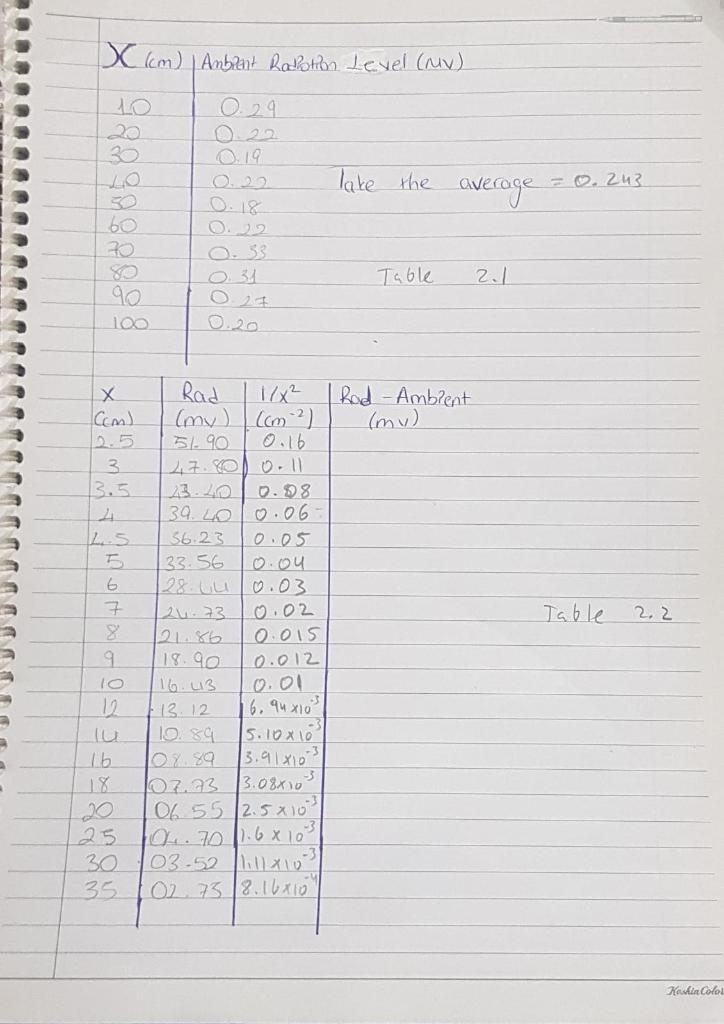 X (cm) Ambient Radiation Level (mv)
10 0.29
20 0.22
30 0.19
40 0.22 Take the average = 0.243
50 0.18
60 0.22
70 0.33
80 0.31 Table 2.1
90 0.27
100 0.20
X Rad 1/x² Rad - Ambient
(cm) (mv) (cm⁻²) (mv)
2.5 51.90 0.16
3 47.80 0.11
3.5 43.40 0.08
4 39.40 0.06
4.5 36.23 0.05
5 33.56 0.04
6 28.44 0.03
7 24.73 0.02 Table 2.2
8 21.86 0.015
9 18.90 0.012
10 16.43 0.01
12 13.12 6.94x10⁻³
14 10.89 5.10x10⁻³
16 08.89 3.91x10⁻³
18 07.73 3.08x10⁻³
20 06.55 2.5x10⁻³
25 04.70 1.6x10⁻³
30 03.52 1.11x10⁻³
35 02.73 8.16x10⁻⁴
KeskinColor